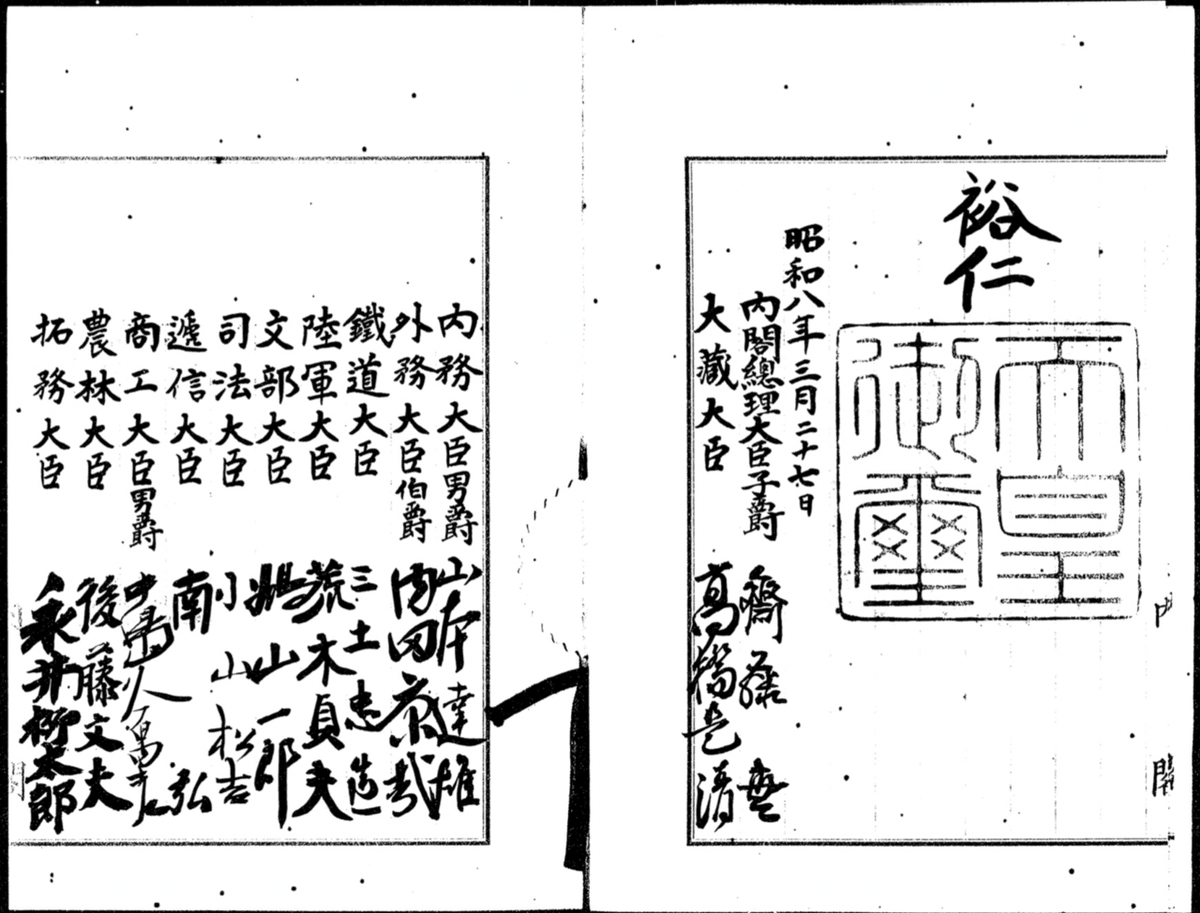 裕仁
天皇御璽
昭和八年三月二十七日
內閣總理大臣子爵 齋藤 實
大藏大臣 高橋是清
內務大臣男爵 山本達雄
外務大臣伯爵 內田康哉
鐵道大臣 三土忠造
陸軍大臣 荒木貞夫
文部大臣 鳩山一郎
司法大臣 小山松吉
遞信大臣 南 弘
商工大臣男爵 中島久萬吉
農林大臣 後藤文夫
拓務大臣 永井柳太郎